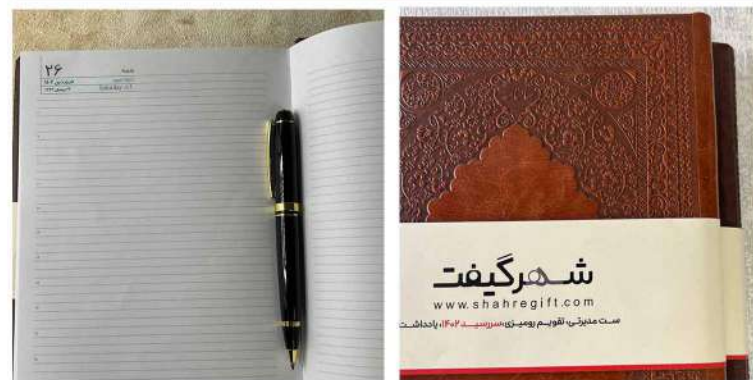 ۲۶
شهرگیفت
www.shahregift.com
ست مدیریتی، تقویم رومیزی، سررسید ۱۴۰۲، یادداشت